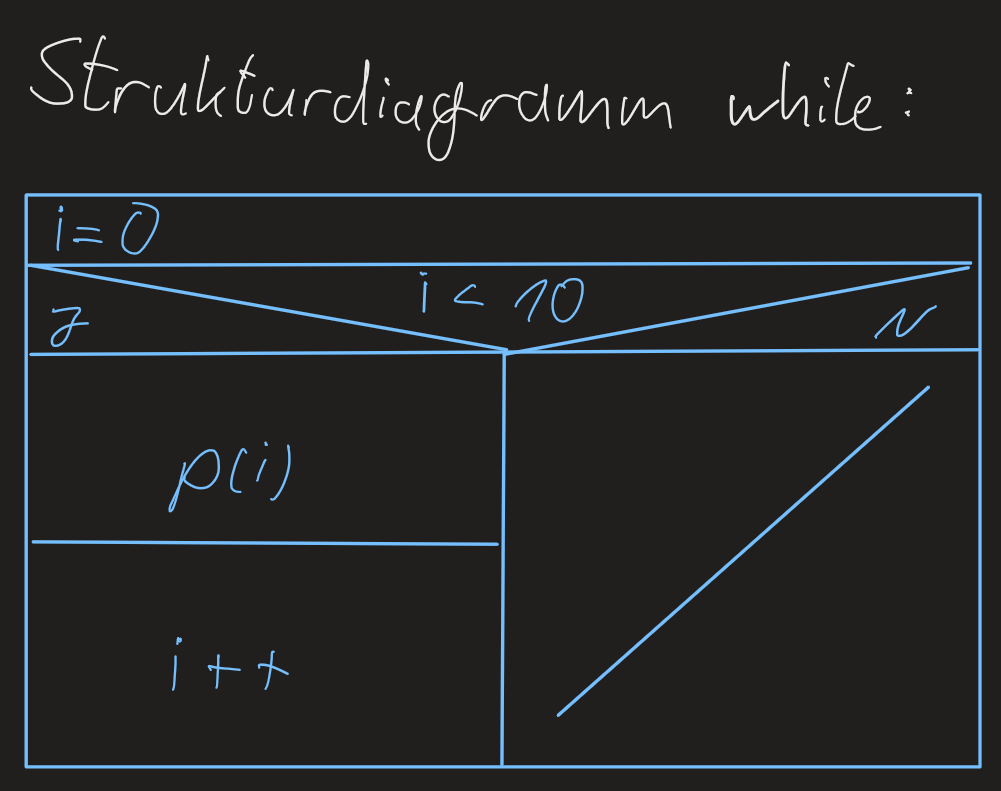 Strukturdiagramm while:
i = 0
i < 10
J
N
p(i)
i++